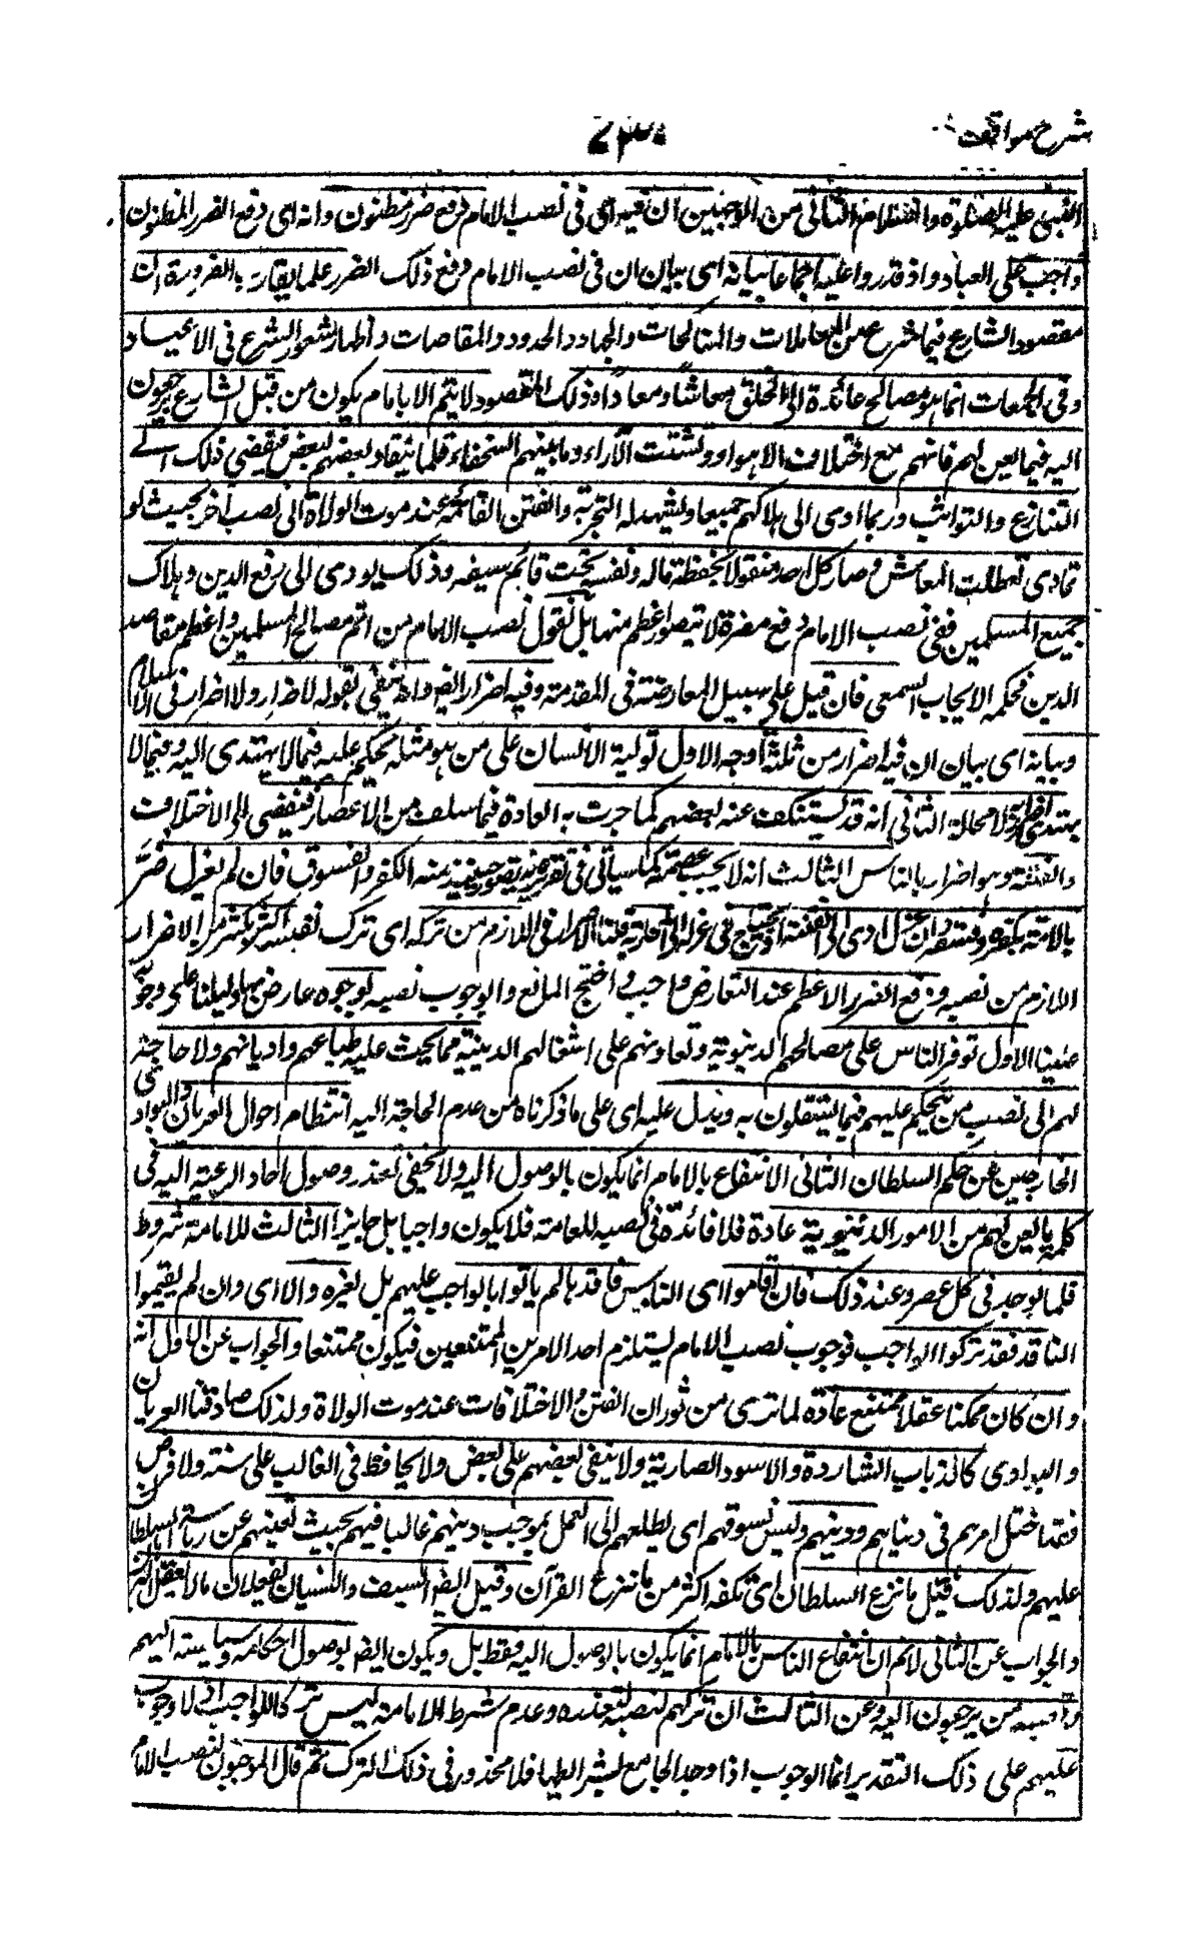 شرح مواقف
۷۳۰
النبی علیه الصلوة والسلام الثانی من الوجهین ان فیه ای فی نصب الامام دفع ضرر مظنون وانه ای دفع الضرر المظنون
واجب علی العباد اذا قدروا علیه اجماعا بیانه ای بیان ان فی نصب الامام دفع ذلک الضرر علما یقارب بالضرورة ان
مقصود الشارع فیما شرع من المعاملات والمناکحات والجهاد والحدود والمقاصات واظهار شعور الشرع فی الاعیاد
وفی الجمعات انما هو مصالح عائدة الی الخلق معاشا ومعادا وذلک المقصود لا یتم الا بامام یکون من قبل الشارع یرجعون
الیه فیما یعن لهم فانهم مع اختلاف الاهواء وتشتت الآراء وما بینهم السخفاء قلما ینقاد بعضهم لبعض فیفضی ذلک الے
التنازع والتواثب وربما ادی الی هلاکهم جمیعا ویشهد له التجربة والفتن القائمة عند موت الولاة الی نصب آخر بحیث لو
تمادی تعطلت المعایش وصار کل احد مشغولا بحفظ ماله ونفسه تحت قائم سیفه وذلک یودی الی رفع الدین وهلاک
جمیع المسلمین ففی نصب الامام دفع مضرة لا یتصور اعظم منها بل نقول نصب الامام من اتم مصالح المسلمین واعظم مقاصد
الدین فحکمه الایجاب السمعی فان قیل علی سبیل المعارضة فی المقدمة وفیه اضرار ایضا وانه منفی بقوله لا ضرر ولا اضرار فی الاسلام
وبیانه ای بیان ان فیه اضرار من ثلثة اوجه الاول تولیة الانسان علی من هو مثله لیحکم علیه فیما لا یهتدی الیه وفیما لا
یهتدی اضرار به لا محالة الثانی انه قد یستنکف عنه بعضهم کما جرت به العادة فیما سلف من الاعصار فیفضی الی الاختلاف
والفتنة وهو اضرار بالناس الثالث انه لا یجب عصمته کما سیأتی فی تقریره فیتصور حینئذ منه الکفر والفسوق فان لم یعزل ضر
بالامة بکفره وفسقه وان عزل ادی الی الفتنة اذ یحتاج فی عزله الی محاربة قلنا الاضرار اللازم من ترکه ای ترک نصبه اکثر بکثیر من الاضرار
اللازم من نصبه ودفع الضرر الاعظم عند التعارض واجب واحتج المانع والوجوب نصبه بوجوه عارض بها دلیلنا علی وجوبه
علینا الاول توفر الناس علی مصالحهم الدنیویة وتعاونهم علی اشغالهم الدینیة مما یحث علیه طباعهم وادیانهم ولا حاجة
لهم الی نصب من یتحکم علیهم فیما یستقلون به ویدل علیه ای علی ما ذکرناه من عدم الحاجة الیه انتظام احوال العربان والبوادی
الخارجین عن حکم السلطان الثانی الانتفاع بالامام انما یکون بالوصول الیه ولا یخفی تعذر وصول آحاد الرعیة الیه فی
کلما یعن لهم من الامور الدنیویة عادة فلا فائدة فی نصبه للعامة فلا یکون واجبا بل جایزا الثالث للامامة شروط
قلما توجد فی کل عصر وعند ذلک فان اقاموا ای الناس فاقدها لم یأتوا بالواجب علیهم بل بغیره والا ای وان لم یقیموا
الفاقد فقد ترکوا الواجب فوجوب نصب الامام یستلزم احد الامرین الممتنعین فیکون ممتنعا والجواب عن الاول انه
وان کان ممکنا عقلا ممتنع عادة لما تری من ثوران الفتن والاختلافات عند موت الولاة ولذلک صادفنا العربان
والبوادی کالذیاب الشاردة والاسود الضاریة ولا یبقی بعضهم علی بعض ولا یحافظ فی الغالب علی سنة ولا فرض
فقد اختل امرهم فی دنیاهم ودینهم ولیس تسوقهم ای تطلعهم الی العمل بموجب دینهم غالبا فیهم بحیث تغنیهم عن ریاسة السلطان
علیهم ولذلک قیل ما یزع السلطان ای یکفه اکثر من ما یزع القرآن وقیل ایضا السیف والسنان یفعلان ما لا یفعل البرهان
والجواب عن الثانی لا نم ان انتفاع الناس بالامام انما یکون بالوصول الیه فقط بل ویکون ایضا بوصول احکامه وسیاسته الیهم
ونصبه من یرجعون الیه وعن الثالث ان ترکهم لنصبه لتعذره وعدم شرط الامامة لیس ترکا للواجب اذ لا وجوب
علیهم علی ذلک التقدیر انما الوجوب اذا وجد الجامع لشرائطها فلا محذور فی ذلک الترک ثم قال الموجبون لنصب الامام